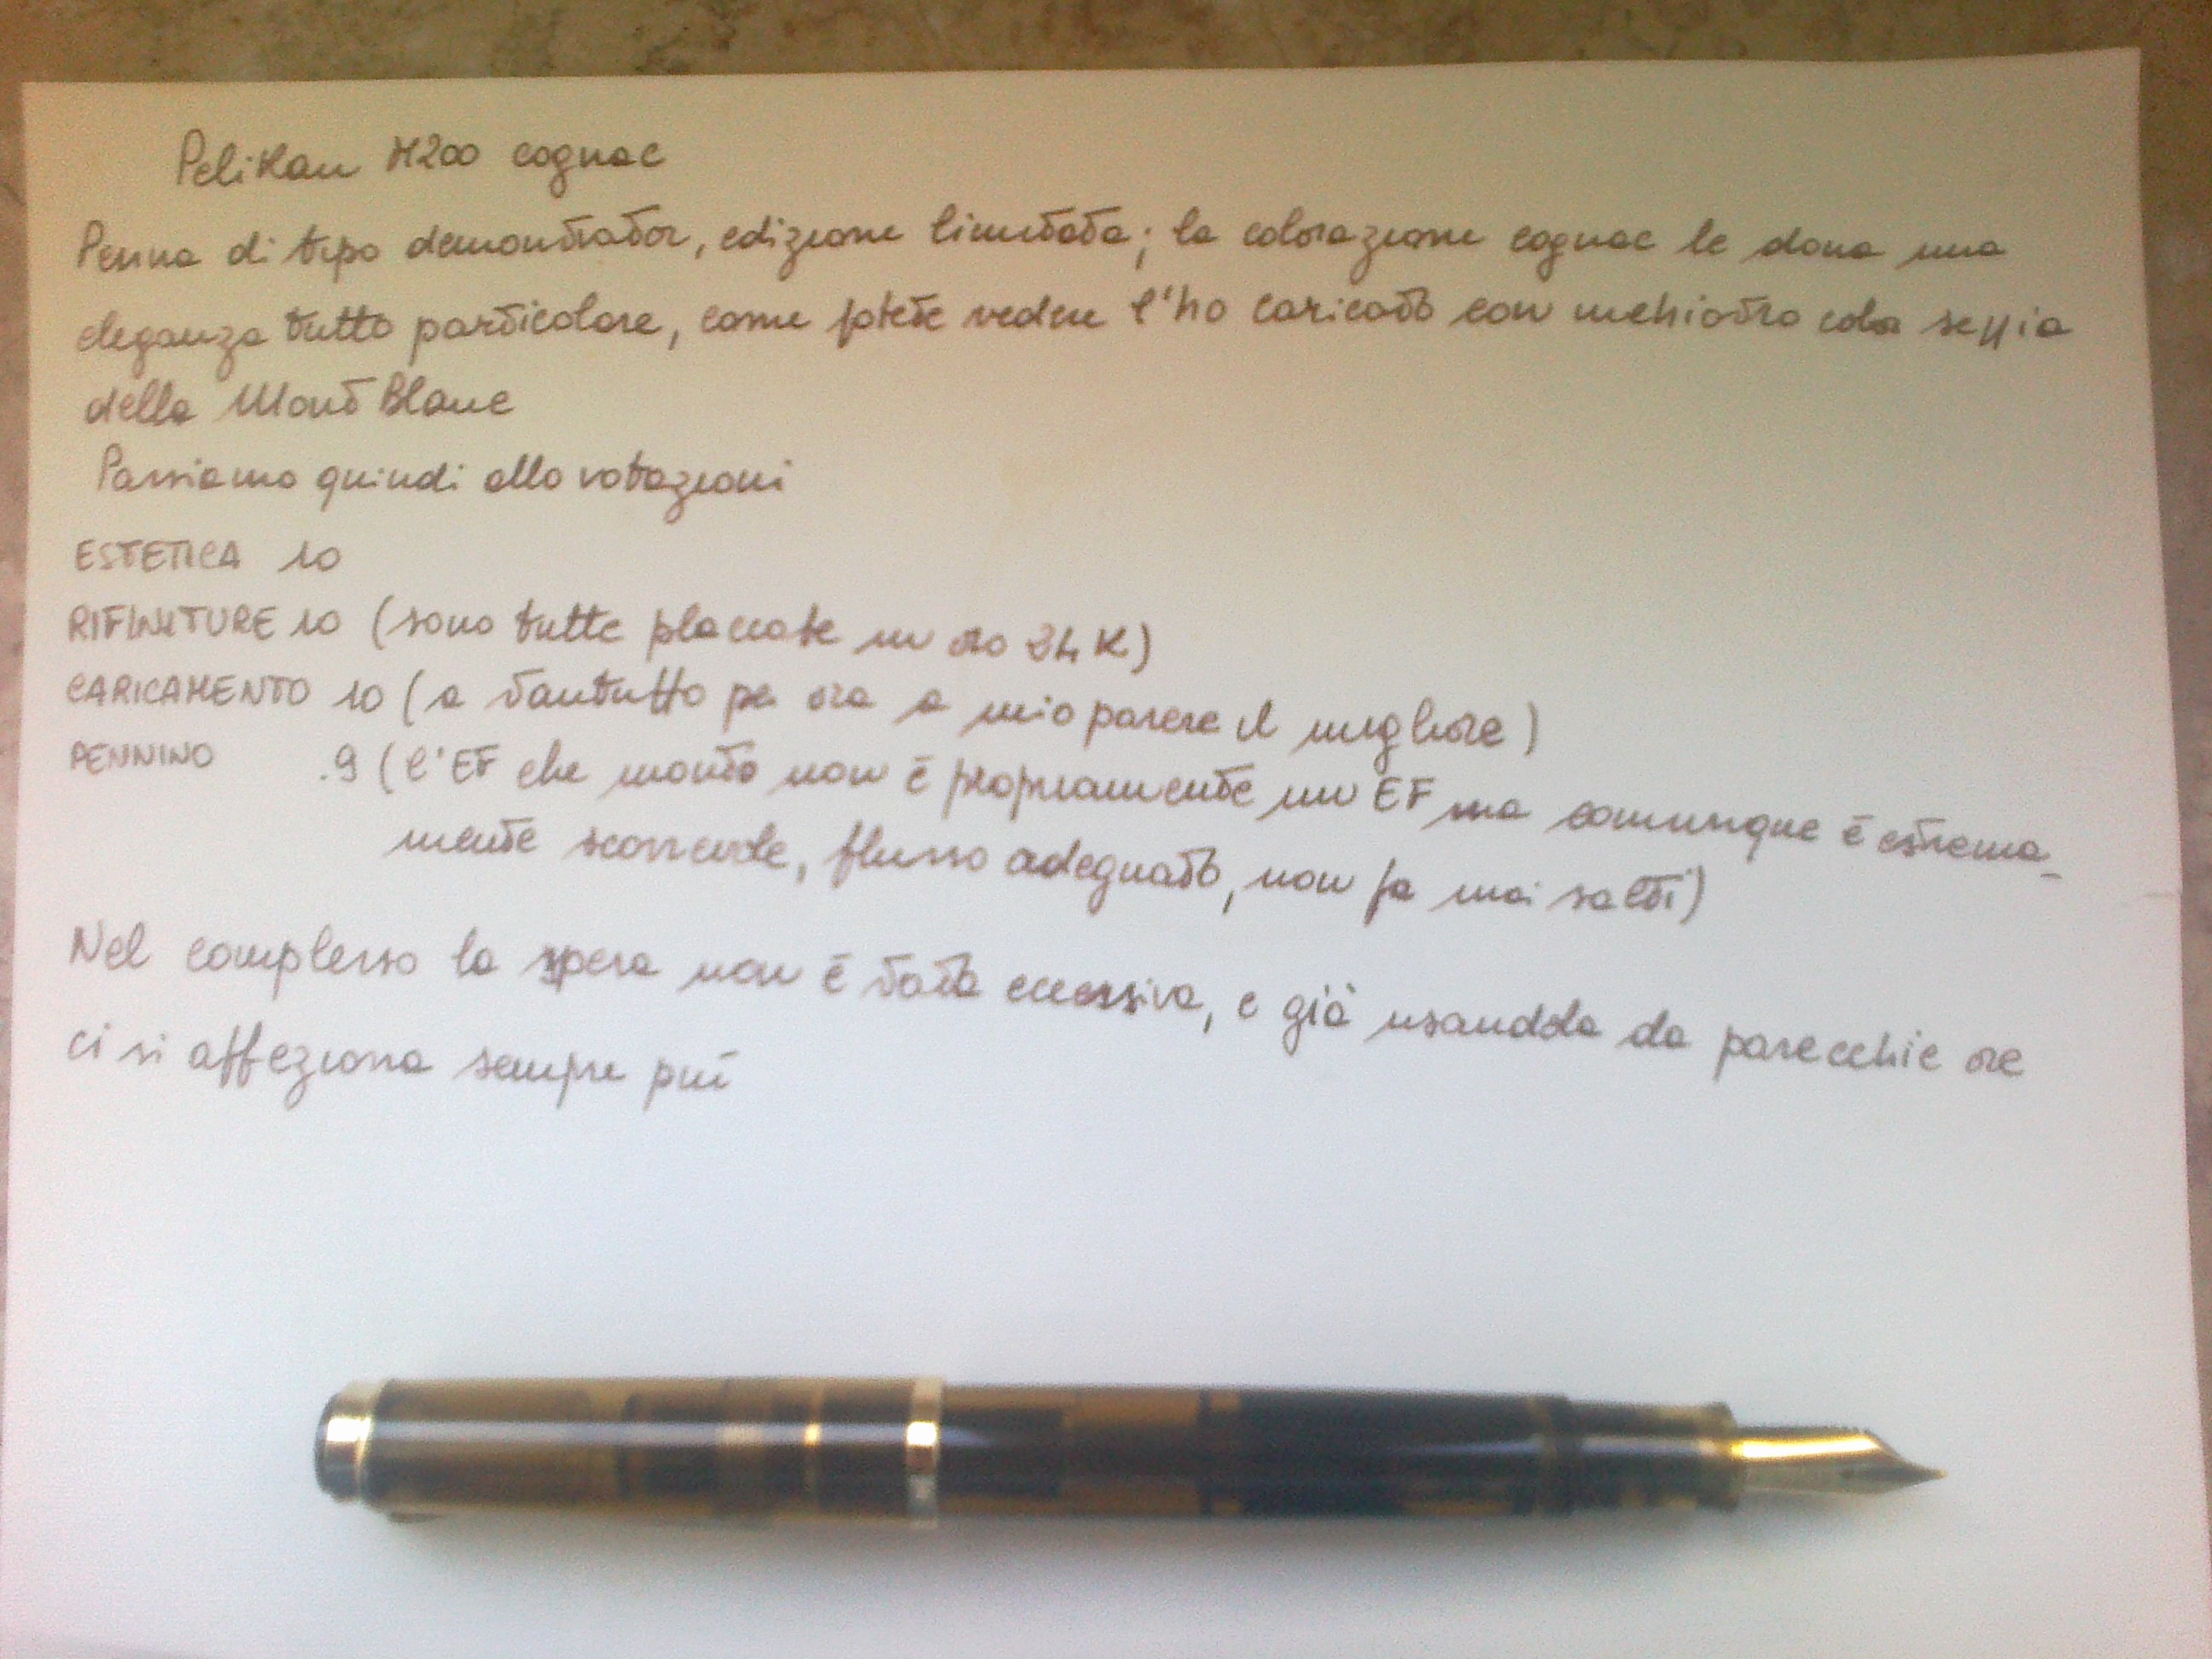 Pelikan M200 cognac
Penna di tipo demonstrator, edizione limitata; la colorazione cognac le dona una
eleganza tutto particolare, come potete vedere l'ho caricato con inchiostro color seppia
della Mont Blanc
Passiamo quindi allo votazioni
ESTETICA 10
RIFINITURE 10 (sono tutte placcate in oro 24 K)
CARICAMENTO 10 (a stantuffo per ora a mio parere il migliore)
PENNINO .9 (l'EF che monta non è propriamente un EF ma comunque è estrema-
mente scorrevole, flusso adeguato, non fa mai salti)
Nel complesso la spesa non è stata eccessiva, e già usandola da parecchie ore
ci si affeziona sempre più